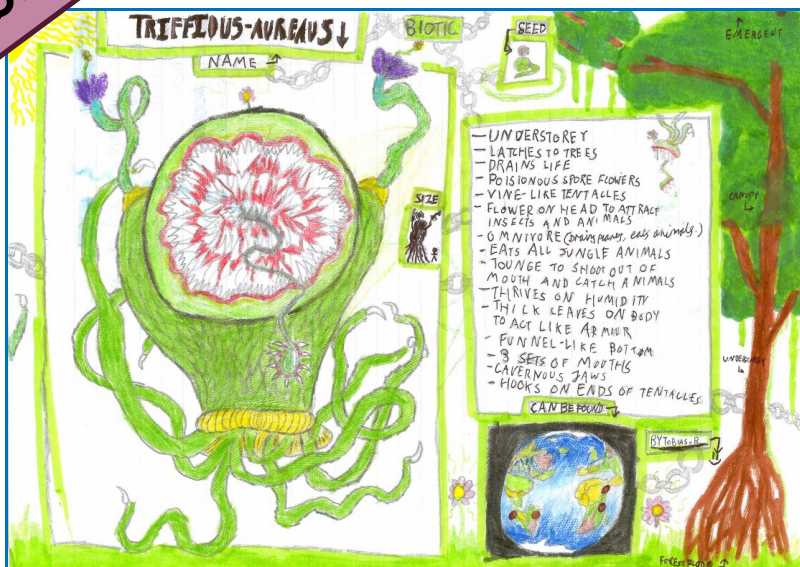 TRIFFIDUS-AUREAUS↓
NAME →
BIOTIC
SEED
EMERGENT
- UNDERSTOREY
- LATCHES TO TREES
- DRAINS LIFE
- POISIONOUS SPORE FLOWERS
- VINE-LIKE TENTALLES
- FLOWER ON HEAD TO ATTRACT
INSECTS AND ANIMALS
- OMNIVORE (drains plants, eats animals.)
- EATS ALL JUNGLE ANIMALS
- TOUNGE TO SHOOT OUT OF
MOUTH AND CATCH ANIMALS
- THRIVES ON HUMIDITY
- THICK LEAVES ON BODY
TO ACT LIKE ARMOUR
- FUNNEL-LIKE BOTTOM
- 3 SETS OF MOUTHS
- CAVERNOUS JAWS
- HOOKS ON ENDS OF TENTALLES
SIZE
CANOPY
CAN BE FOUND
BY TOBIAS.R